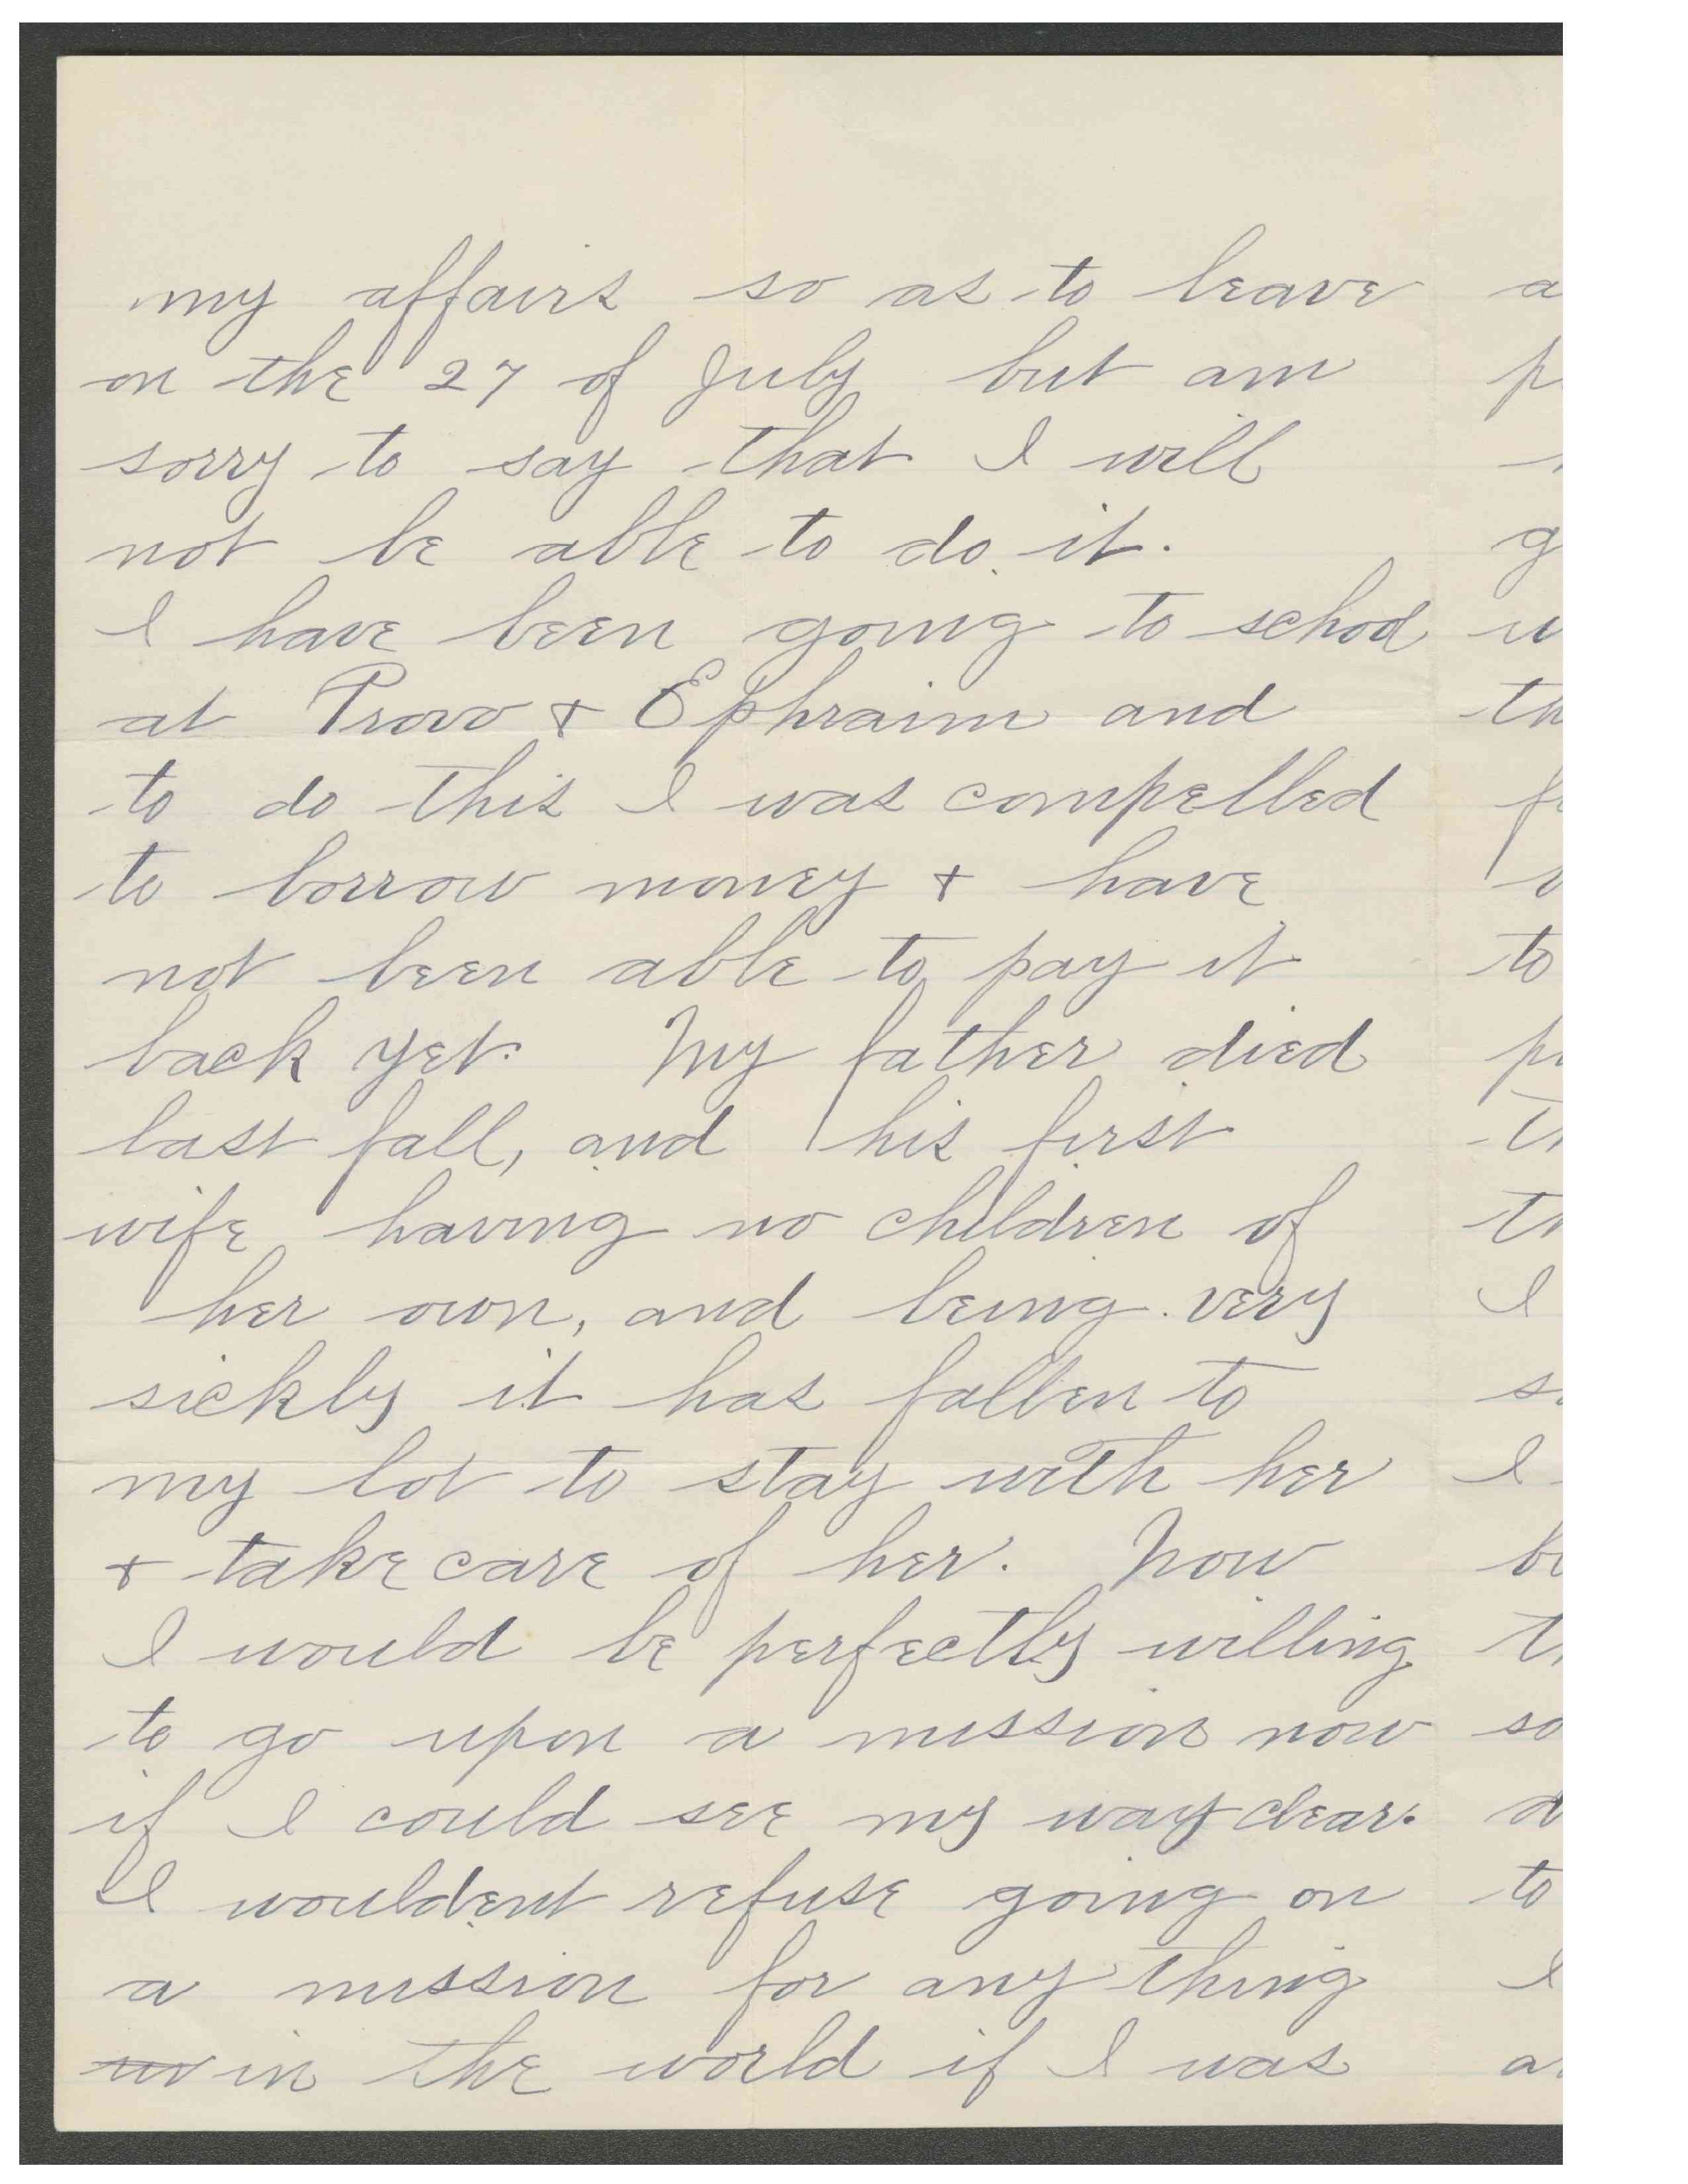 my affairs so as to leave
on the 27 of July but am
sorry to say that I will
not be able to do it.
I have been going to school
at Provo & Ephraim and
to do this I was compelled
to borrow money & have
not been able to pay it
back yet. My father died
last fall, and his first
wife having no children of
her own, and being very
sickly it has fallen to
my lot to stay with her
& take care of her. Now
I would be perfectly willing
to go upon a mission now
if I could see my way clear.
I wouldent refuse going on
a mission for any thing
in the world if I was